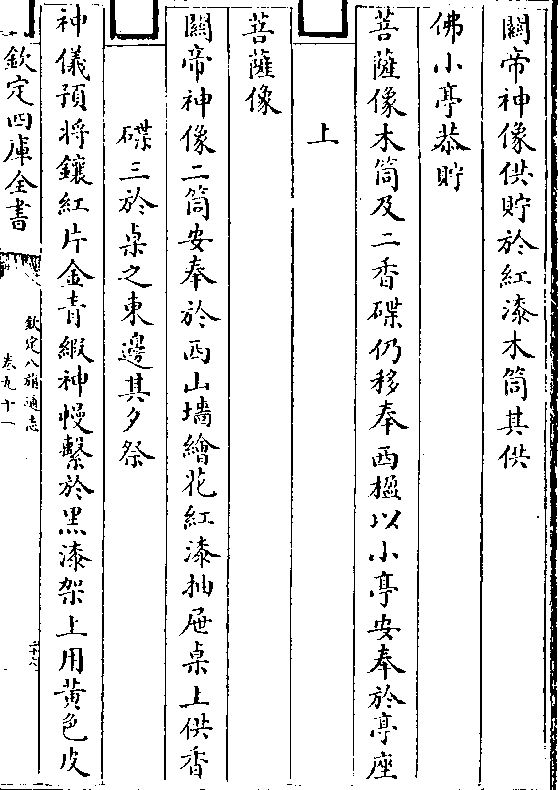 關帝神像供貯於紅漆木筒其供
佛小亭恭貯
菩薩像木筒及二香碟仍移奉西楹以小亭安奉於亭座
上
菩薩像
關帝神像二筒安奉於西山墻繪花紅漆抽屜桌上供香
碟三於桌之東邊其夕祭
神儀預將鑲紅片金青緞神幔繫於黑漆架上用黃色皮
欽定四庫全書
欽定八旗通志
卷九十一